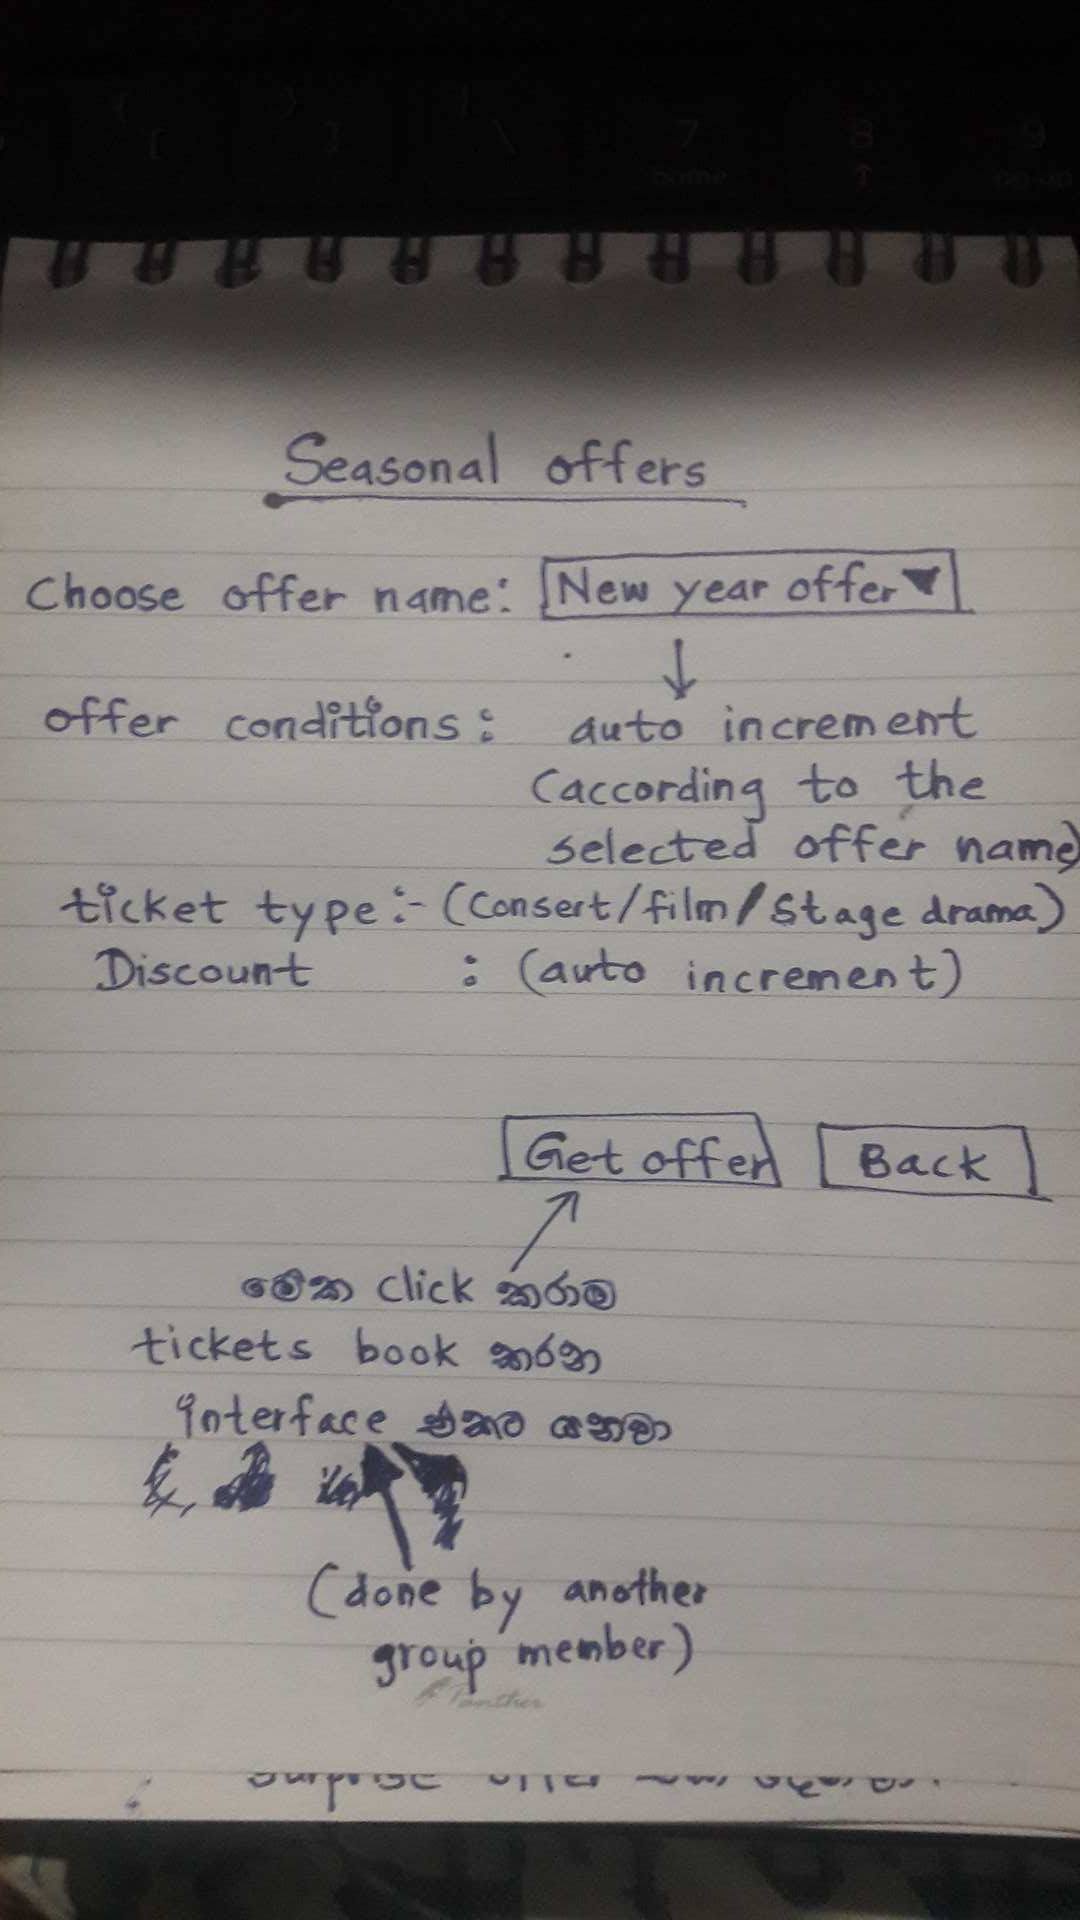 Seasonal offers
Choose offer name: New year offer
offer conditions: auto increment
(according to the
selected offer name)
ticket type:- (Consert/film/Stage drama)
Discount : (auto increment)
Get offer Back
මේක click කරාම
tickets book කරන
interface එකට යනවා
(done by another
group member)
Panther
7 8 9
home